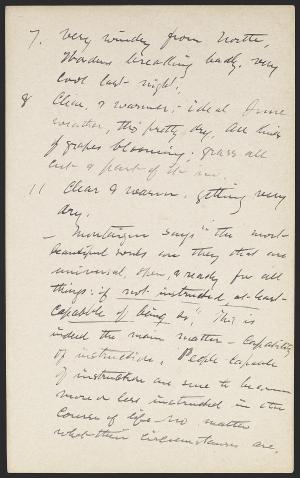 7. Very windy from North,
Wardens breaking badly, very
cool last night.
8 Clear, & warmer; - ideal June
weather, tho' pretty dry, All kinds
of grapes blooming; grass all
cut & part of it in.
11 Clear & warm. Getting very
dry.
— Montaigne says "the most
beautiful souls are they that are
universal, open, & ready for all
things: if not instructed, at least
capable of being so", This is
indeed the main matter - capability
of instruction. People capable
of instruction are sure to become
more or less instructed in the
course of life - no matter
what their circumstances are.